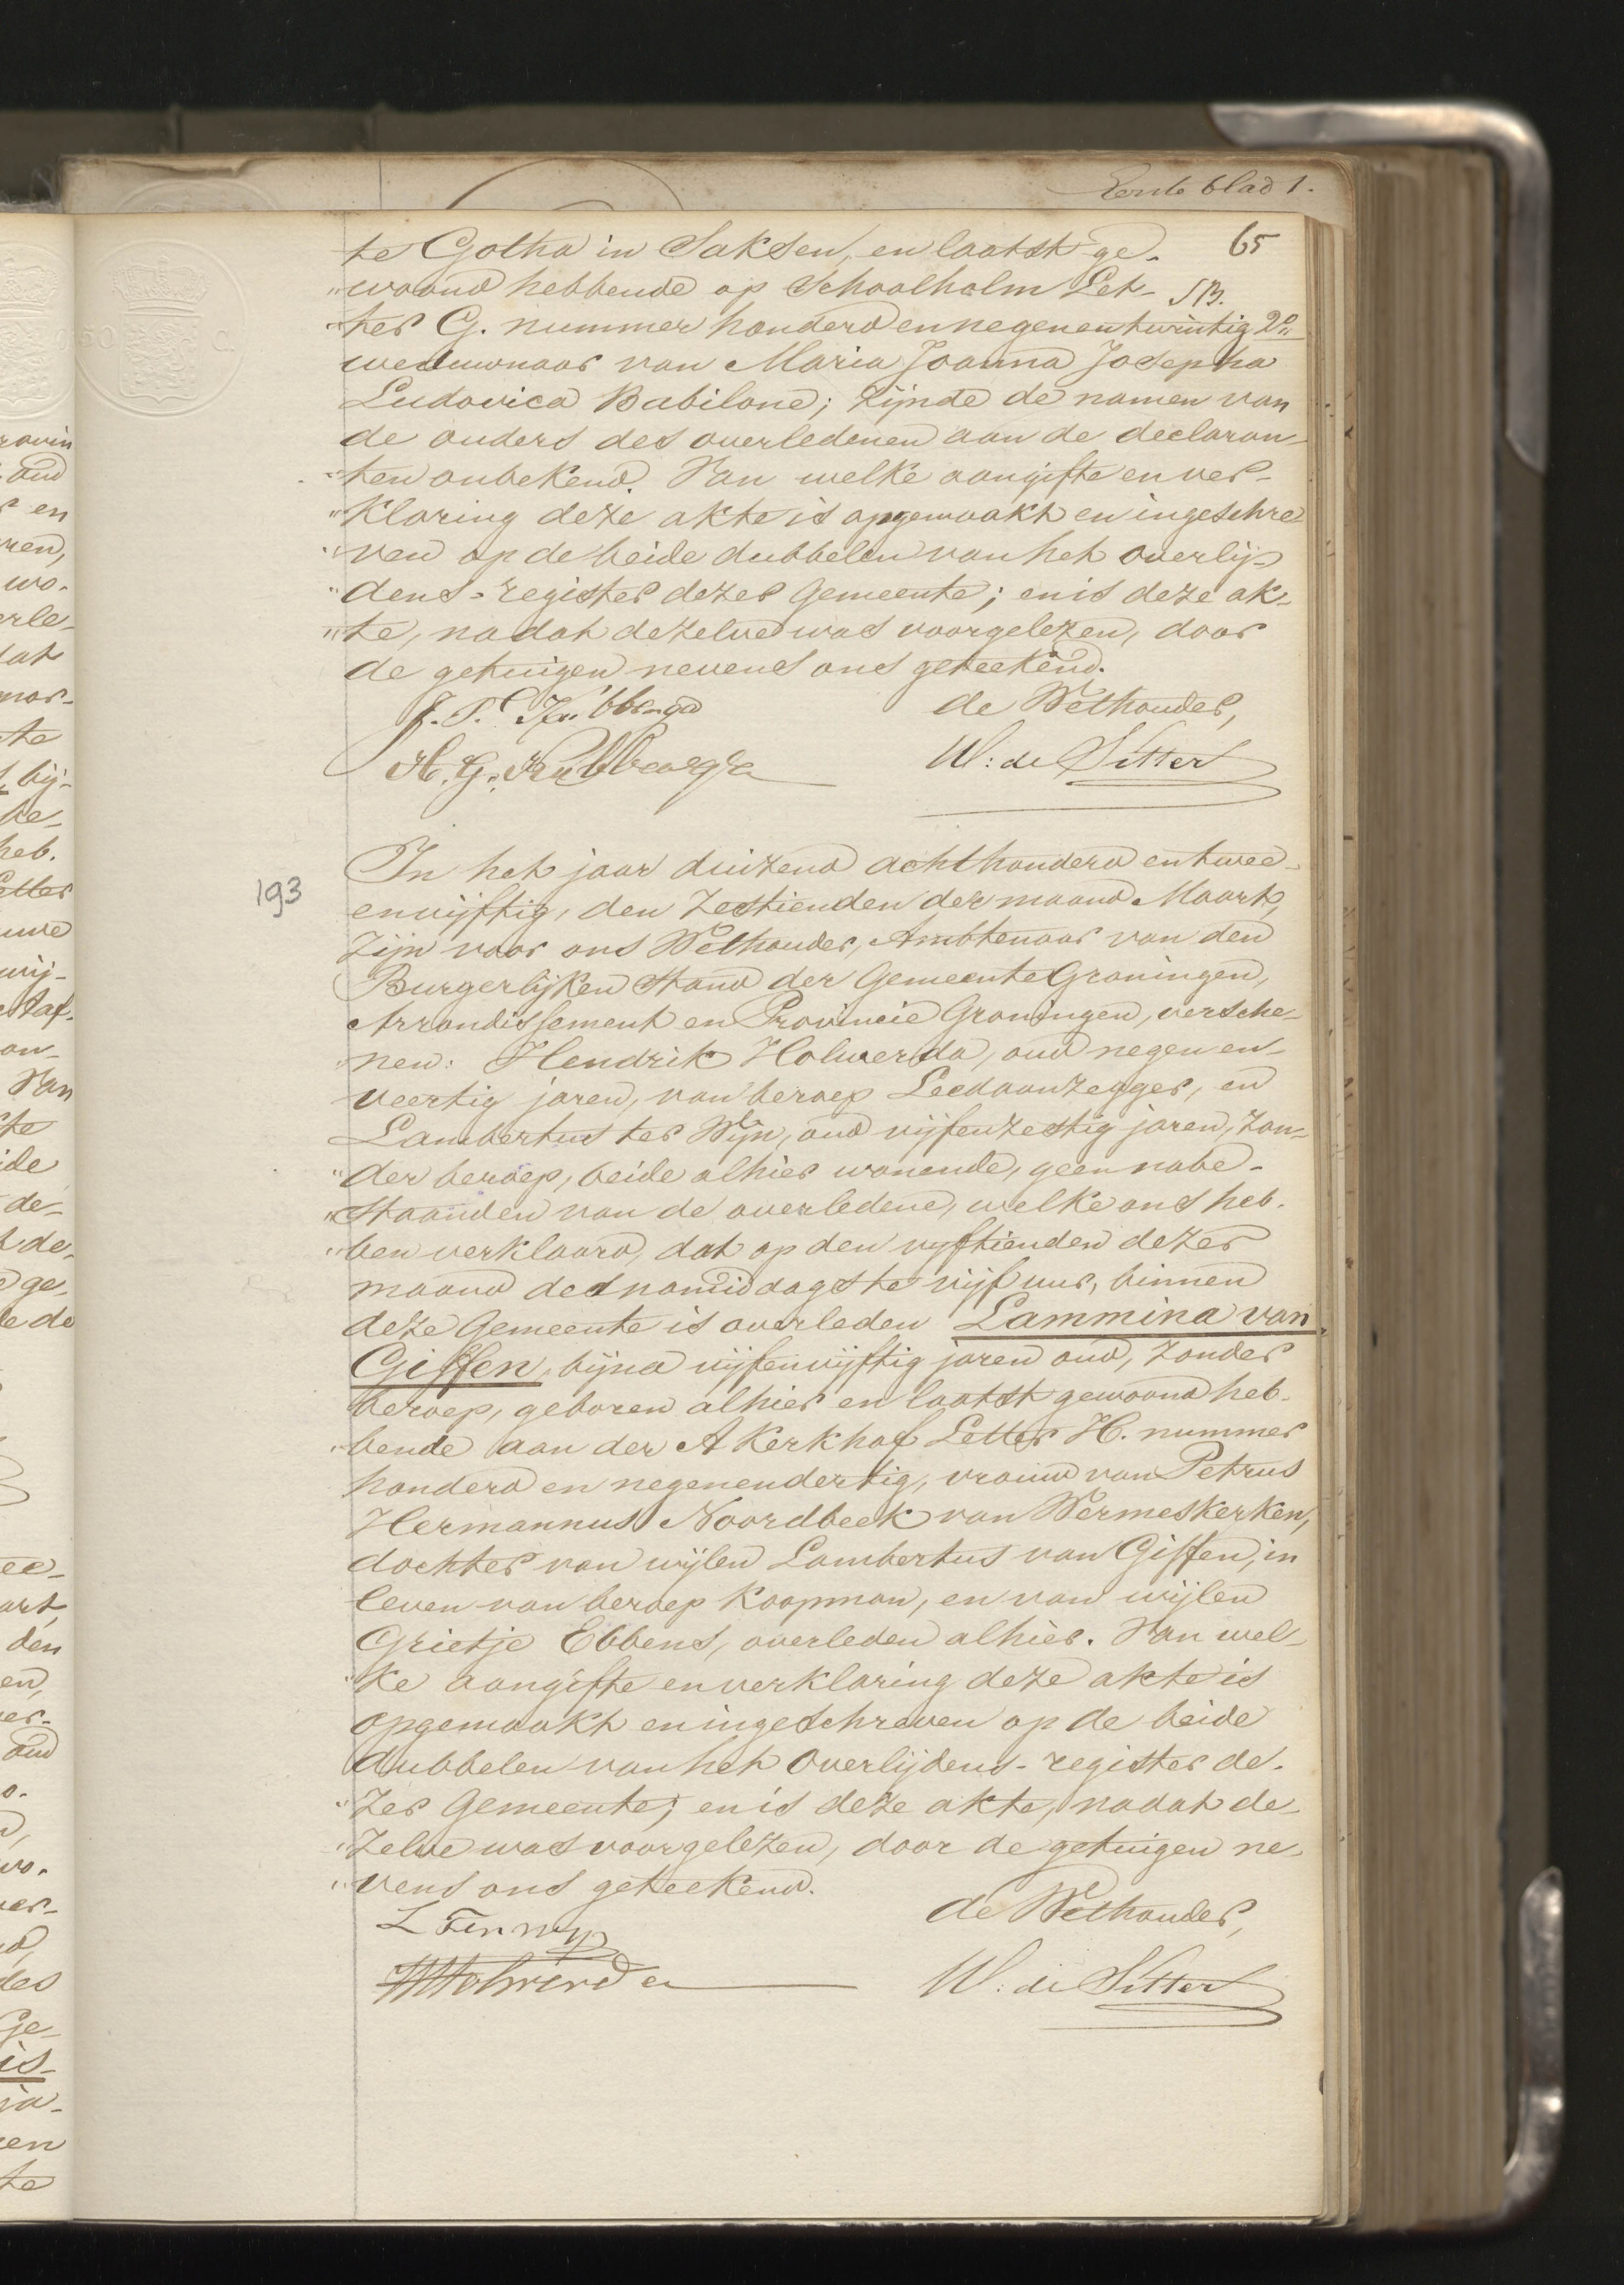 Eerste blad 1.
65
te Gotha in Saksen, en laatst ge-
"woond hebbende op Schoolholm Let-
"ter G. nummer honderd en negenentwintig 2o
weduwnaar van Maria Joanna Josepha
Ludovica Babilone; zijnde de namen van
de ouders des overledenen aan de declaran-
"ten onbekend. Van welke aangifte en ver-
"klaring deze akte is opgemaakt en ingeschre
"ven op de beide dubbelen van het overlij-
"dens-register dezer Gemeente; en is deze ak-
"te, nadat dezelve was voorgelezen, door
de getuigen nevens ons geteekend.
de Wethouder,
W: de Sitter
193
In het jaar duizend achthonderd en twee-
envijftig, den Zestienden der maand Maart,
Zijn voor ons Wethouder, Ambtenaar van den
Burgerlijken Stand der Gemeente Groningen,
Arrondissement en Provincie Groningen, versche-
"nen: Hendrik Holwerda, oud negen en-
veertig jaren, van beroep Leedaanzegger, en
Lambertus ter Wijn, oud vijfenzestig jaren, zon-
"der beroep, beide alhier wonende, geen nabe-
"staanden van de overledene, welke ons heb-
"ben verklaard, dat op den vijftienden dezer
maand des namiddags te vijf uur, binnen
deze Gemeente is overleden Lammina van
Giffen, bijna vijfenvijftig jaren oud, zonder
beroep, geboren alhier en laatst gewoond heb-
"bende aan der A Kerkhof Letter H. nummer
honderd en negenendertig, vrouw van Petrus
Hermannus Noordbeek van Wermeskerken,
dochter van wijlen Lambertus van Giffen, in
leven van beroep Koopman, en van wijlen
Grietje Ebbens, overleden alhier. Van wel-
"ke aangifte en verklaring deze akte is
opgemaakt en ingeschreven op de beide
dubbelen van het Overlijdens-register de-
"zer Gemeente; en is deze akte, nadat de-
"zelve was voorgelezen, door de getuigen ne-
"vens ons geteekend.
L Ter Wijn
HHolwerda
de Wethouder,
W: de Sitter